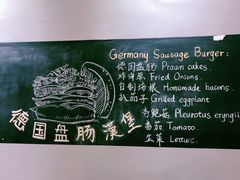 Germany Sausage Burger:
德国盘肠 Prawn cakes.
炸洋葱 Fried Onions.
自制培根 Homemade bacons.
扒茄子 Grilled eggplant
杏鲍菇 Pleurotus eryngii
番茄 Tomato.
生菜 Lettuce.
德国盘肠漢堡